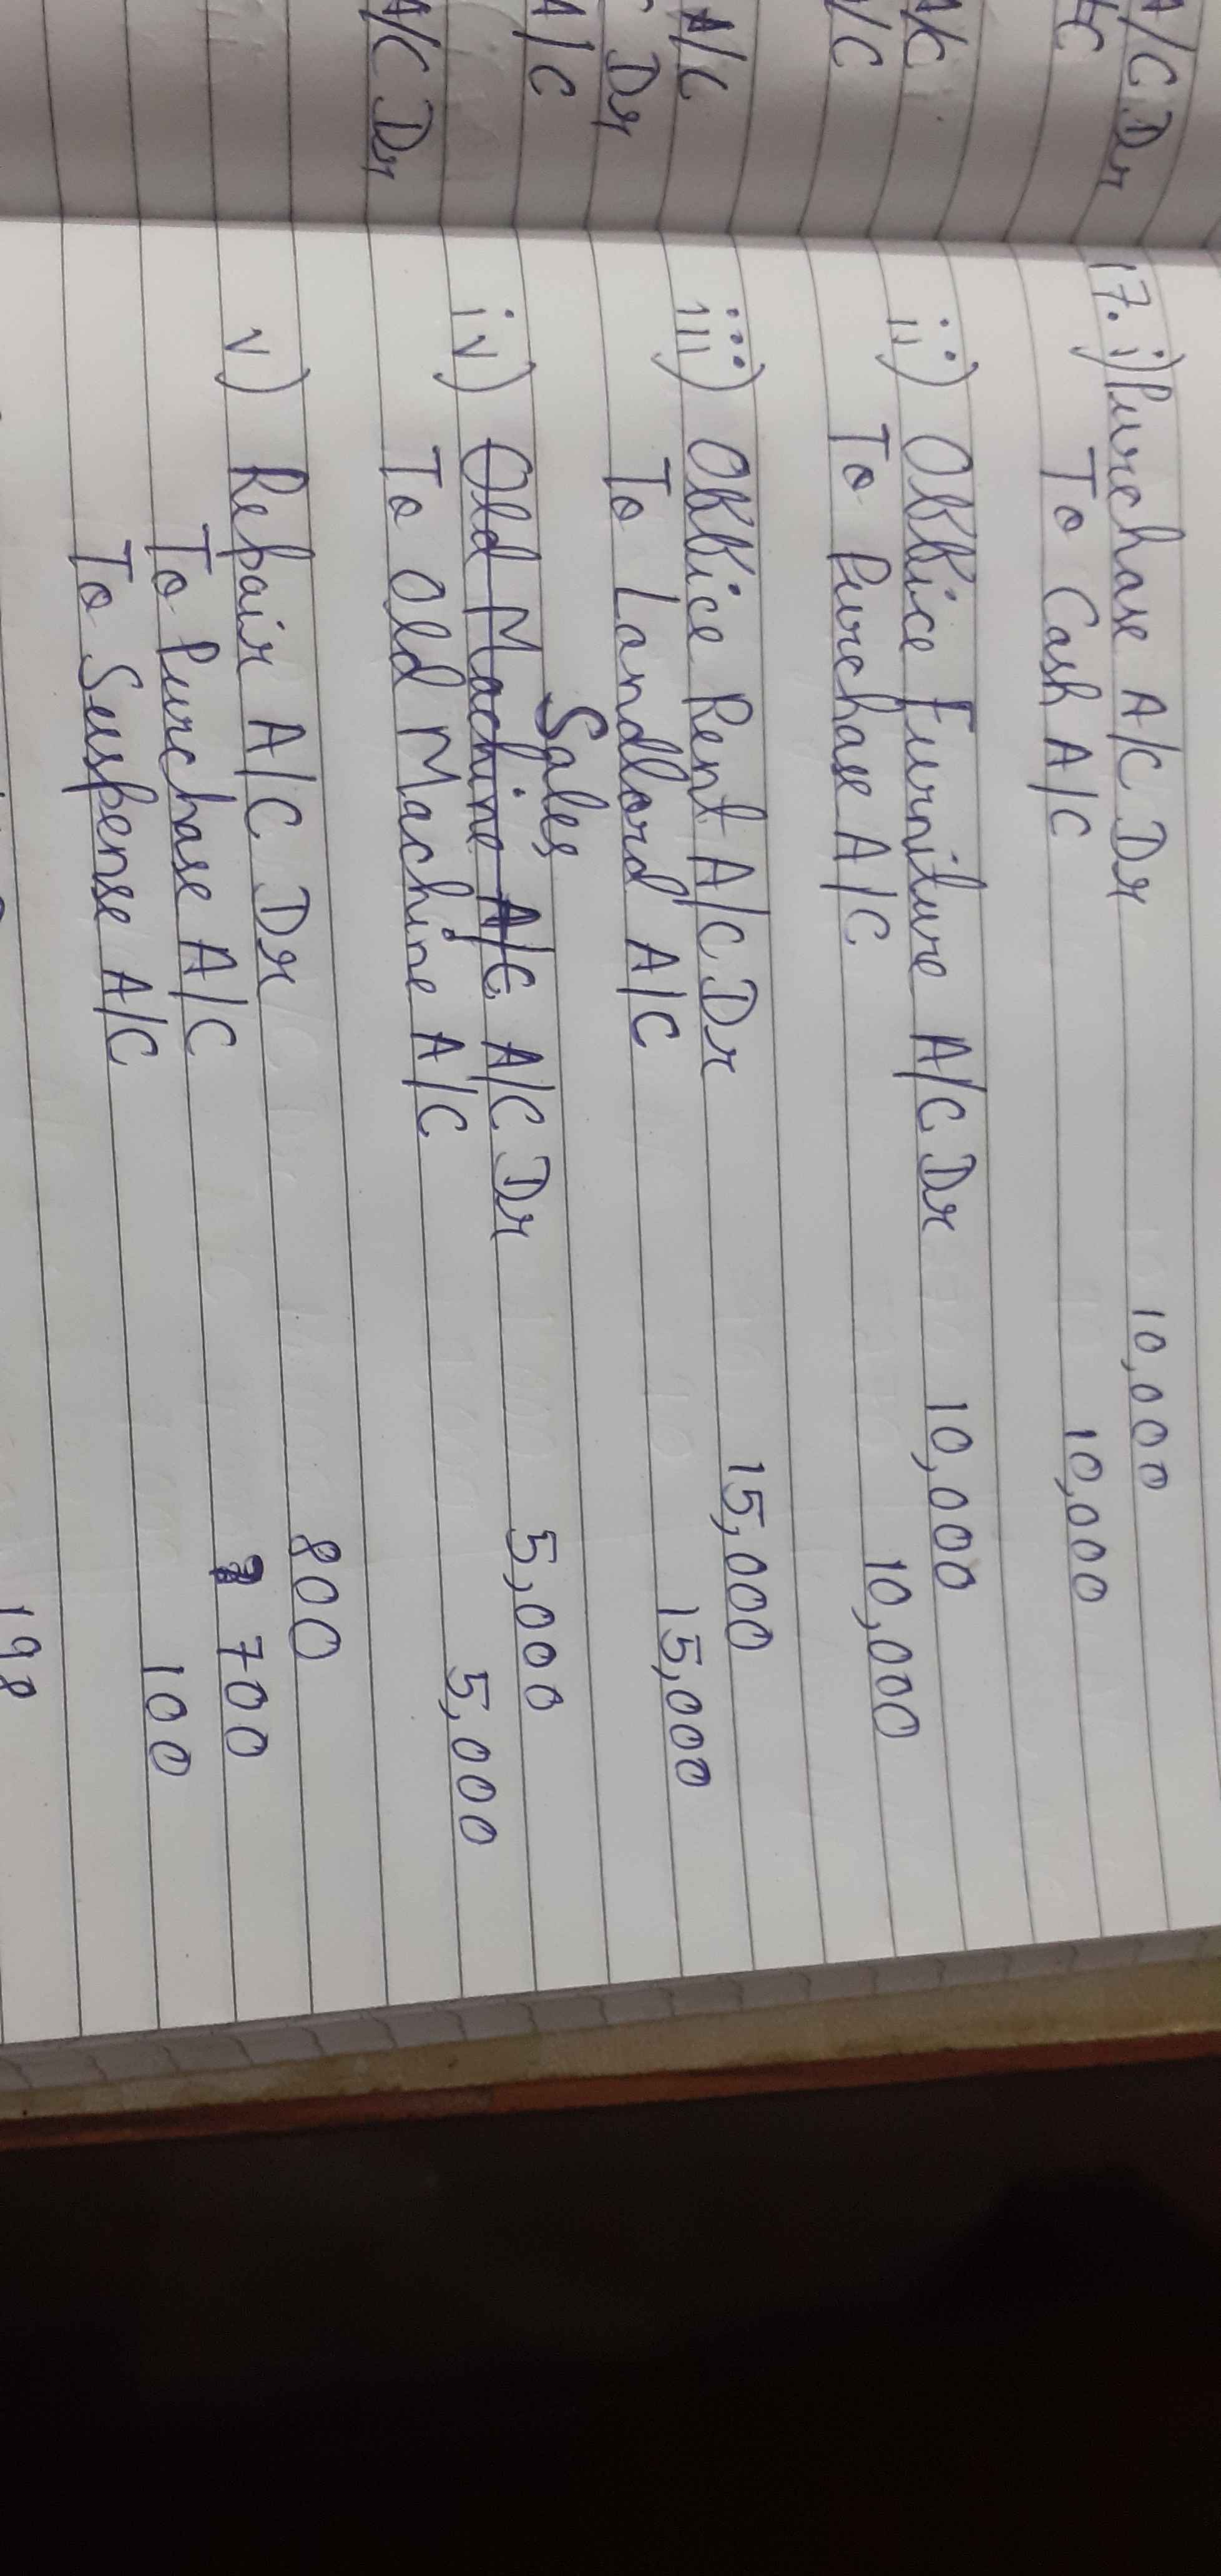 A/C Dr
A/C
A/C
A/C
Dr
A/C
A/C Dr
17. i) Purchase A/C Dr 10,000
To Cash A/C 10,000
ii) Office Furniture A/C Dr 10,000
To Purchase A/C 10,000
iii) Office Rent A/C Dr 15,000
To Landlord A/C 15,000
Sales
iv) Old Machine A/C A/C Dr 5,000
To Old Machine A/C 5,000
v) Repair A/C Dr 800
To Purchase A/C 700
To Suspense A/C 100
198